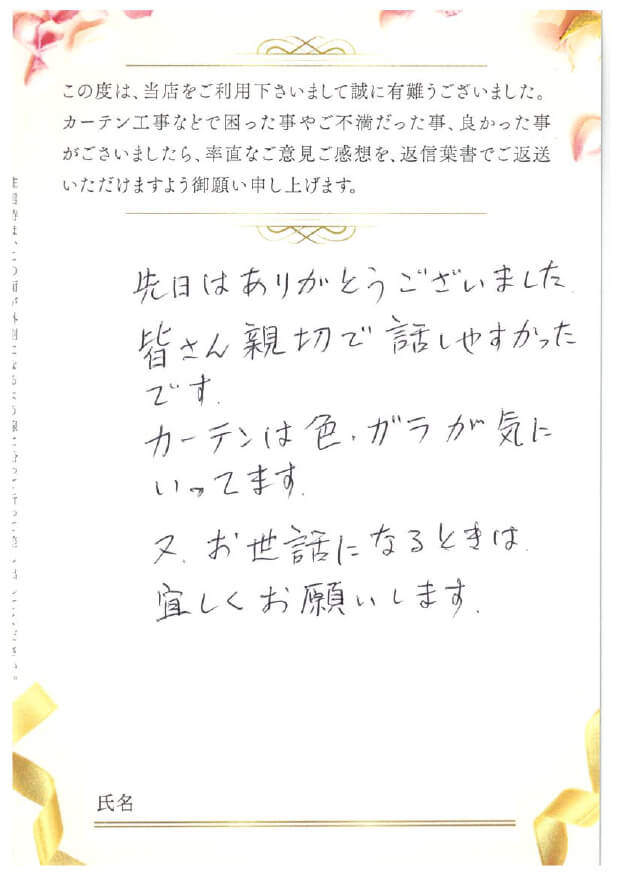 この度は、当店をご利用下さいまして誠に有難うございました。
カーテン工事などで困った事やご不満だった事、良かった事
がございましたら、率直なご意見ご感想を、返信葉書でご返送
いただけますよう御願い申し上げます。
先日はありがとうございました.
皆さん親切で話しやすかった
です.
カーテンは色.ガラが気に
いってます.
又.お世話になるときは.
宜しくお願いします.
氏名